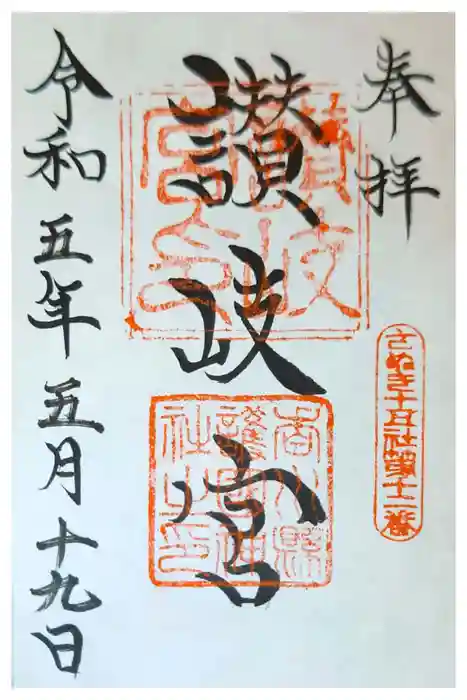 奉拝
さぬき十五社第十二番
讃岐宮
讃岐宮
香川縣護國神社之印
令和五年五月十九日